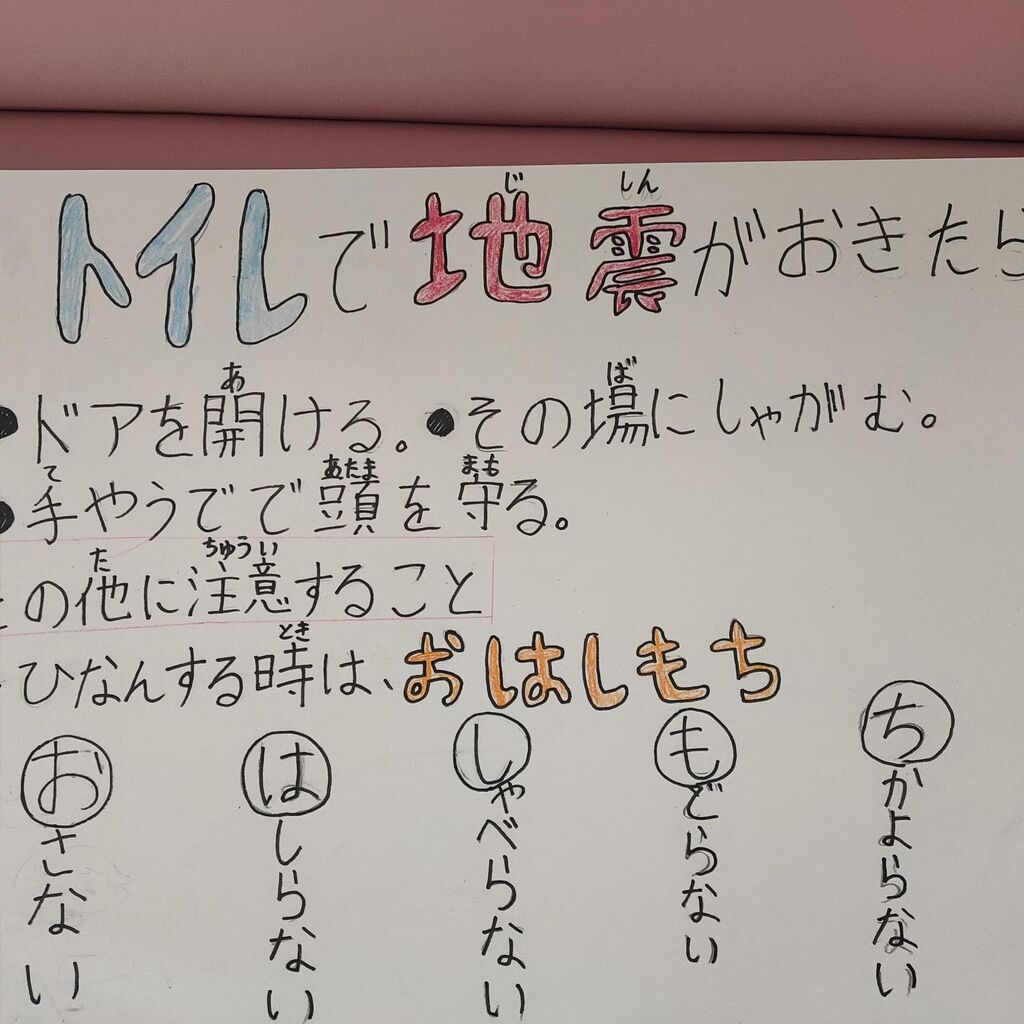 トイレで地震がおきたら
じ しん
●ドアを開ける。●その場にしゃがむ。
あ ば
●手やうでで頭を守る。
て あたま まも
の他に注意すること
た ちゅうい
ひなんする時は、おはしもち
とき
おさない
はしらない
しゃべらない
もどらない
ちかよらない